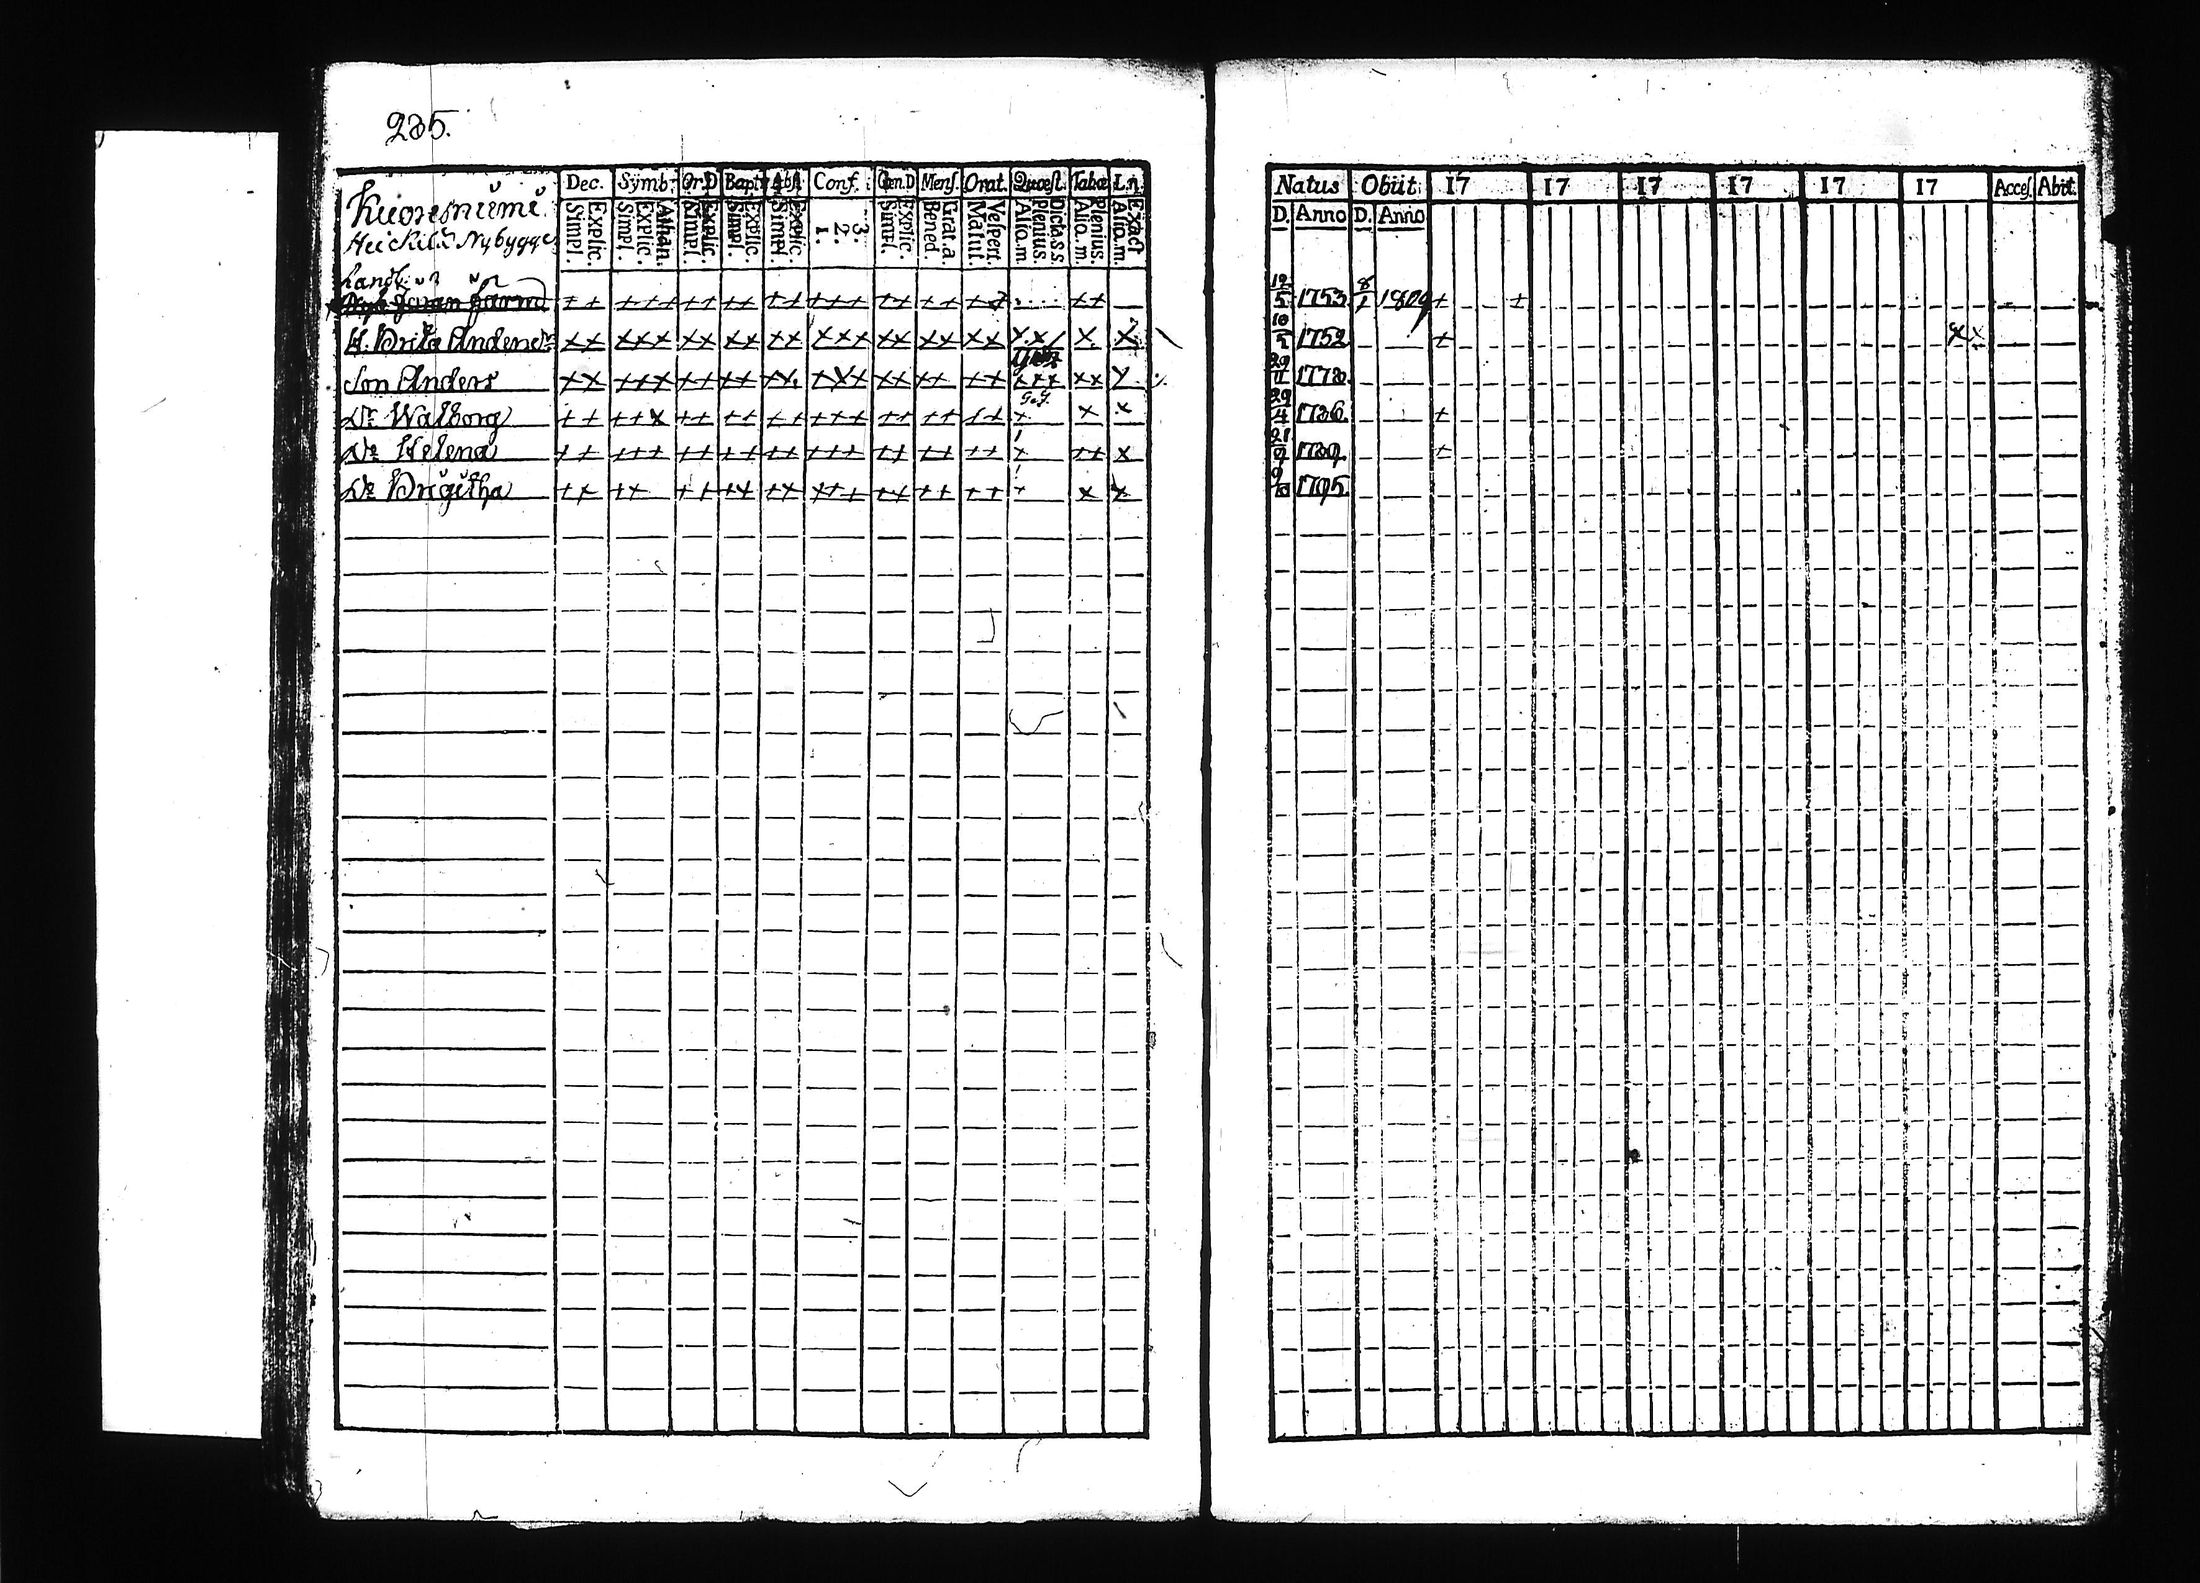 235.
Kuoresniemi
Nybygge
Dec. Symb: Or.D Bapt. Abs. Conf. Gen.D Mens. Orat. Quæst. Tabæ L.n.
Simpl. Explic. Simpl. Explic. Athan. Simpl. Explic. Simpl. Explic. Simpl. Explic. 1. 2. 3. Simpl. Explic. Bened. Grat. a. Matut. Vespert. Alio. m. plenius. Dicta. s s. Alio. m. plenius. Alio. m. Exact
Natus Obiit 17 17 17 17 17 17 Acces. Abit.
D. Anno D. Anno
Landb.
12/5 1753 8/1 1809
H. Brita Andersdr 10/5 1752
Son Anders 29/11 1778
Dr Walborg 29/4 1786
Dr Helena 21/9 1789
Dr Brigitha 9/10 1795